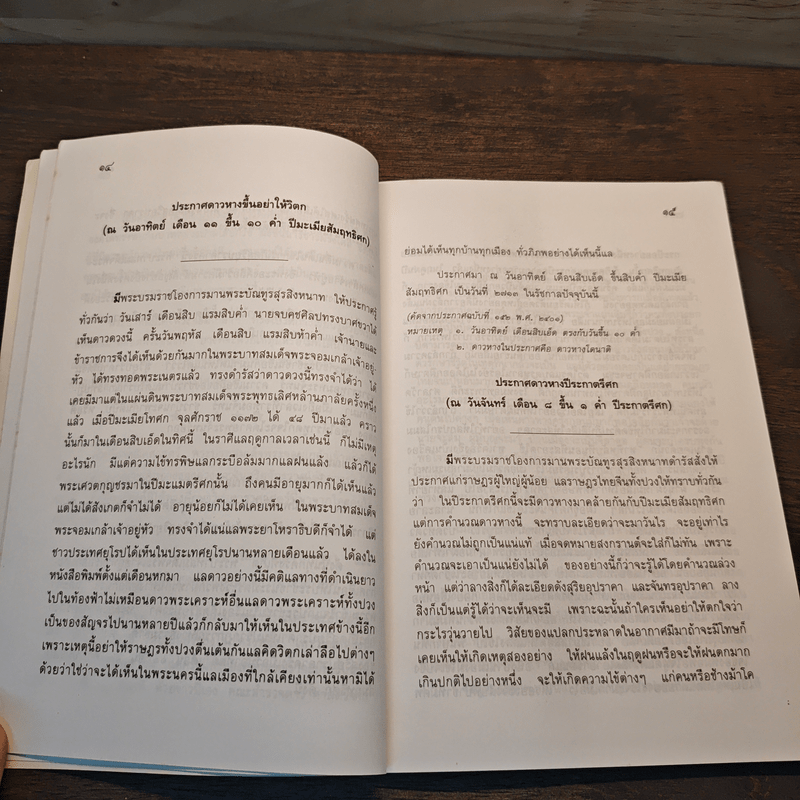 ๑๔
ประกาศดาวหางขึ้นอย่าให้วิตก
(ณ วันอาทิตย์ เดือน ๑๑ ขึ้น ๑๐ ค่ำ ปีมะเมียสัมฤทธิศก)
มีพระบรมราชโองการมานพระบัณฑูรสุรสิงหนาท ให้ประกาศรู้
ทั่วกันว่า วันเสาร์ เดือนสิบ แรมสิบค่ำ นายจบคชศิลปทรงบาศขวาได้
เห็นดาวดวงนี้ ครั้นวันพฤหัส เดือนสิบ แรมสิบห้าค่ำ เจ้านายและ
ข้าราชการจึงได้เห็นด้วยกันมากในพระบาทสมเด็จพระจอมเกล้าเจ้าอยู่-
หัว ได้ทรงทอดพระเนตรแล้ว ทรงดำรัสว่าดาวดวงนี้ทรงจำได้ว่า ได้
เคยมีมาแต่ในแผ่นดินพระบาทสมเด็จพระพุทธเลิศหล้านภาลัยครั้งหนึ่ง
แล้ว เมื่อปีมะเมียโทศก จุลศักราช ๑๑๗๒ ได้ ๔๘ ปีมาแล้ว คราว
นั้นก็มาในเดือนสิบเอ็ดในทิศนี้ ในราศีแลฤดูกาลเวลาเช่นนี้ ก็ไม่มีเหตุ
อะไรนัก มีแต่ความไข้ทรพิษแลกระบือล้มมากแลฝนแล้ง แล้วก็ได้
พระเศวตกุญชรมาในปีมะแมตรีศกนั้น ถึงคนมีอายุมากก็ได้เห็นแล้ว
แต่ไม่ได้สังเกตก็จำไม่ได้ อายุน้อยก็ไม่ได้เคยเห็น ในพระบาทสมเด็จ
พระจอมเกล้าเจ้าอยู่หัว ทรงจำได้แน่แลพระยาโหราธิบดีก็จำได้ แต่
ชาวประเทศยุโรปได้เห็นในประเทศยุโรปนานหลายเดือนแล้ว ได้ลงใน
หนังสือพิมพ์ตั้งแต่เดือนหกมา แลดาวอย่างนี้มีคติแลทางที่ดำเนินยาว
ไปในท้องฟ้าไม่เหมือนดาวพระเคราะห์อื่นแลดาวพระเคราะห์ทั้งปวง
เป็นของสัญจรไปนานหลายปีแล้วก็กลับมาให้เห็นในประเทศข้างนี้อีก
เพราะเหตุนี้อย่าให้ราษฎรทั้งปวงตื่นเต้นกันแลคิดวิตกเล่าลือไปต่างๆ
ด้วยว่าใช่ว่าจะได้เห็นในพระนครนี้แลเมืองที่ใกล้เคียงเท่านั้นหามิได้
๑๕
ย่อมได้เห็นทุกบ้านทุกเมือง ทั่วภิภพอย่างได้เห็นนี้แล
ประกาศมา ณ วันอาทิตย์ เดือนสิบเอ็ด ขึ้นสิบค่ำ ปีมะเมีย
สัมฤทธิศก เป็นวันที่ ๒๗๑๓ ในรัชกาลปัจจุบันนี้
(คัดจากประกาศฉบับที่ ๑๕๒ พ.ศ. ๒๔๐๑)
หมายเหตุ ๑. วันอาทิตย์เดือนสิบเอ็ด ตรงกับวันขึ้น ๑๐ ค่ำ
๒. ดาวหางในประกาศคือ ดาวหางโดนาติ
ประกาศดาวหางปีระกาตรีศก
(ณ วันจันทร์ เดือน ๘ ขึ้น ๑ ค่ำ ปีระกาตรีศก)
มีพระบรมราชโองการมานพระบัณฑูรสุรสิงหนาทดำรัสสั่งให้
ประกาศแก่ราษฎรผู้ใหญ่ผู้น้อย แลราษฎรไทยจีนทั้งปวงให้ทราบทั่วกัน
ว่า ในปีระกาตรีศกนี้จะมีดาวหางมาคล้ายกันกับปีมะเมียสัมฤทธิศก
แต่การคำนวณดาวหางนี้ จะทราบละเอียดว่าจะมาวันไร จะอยู่เท่าไร
ยังคำนวณไม่ถูกเป็นแน่แท้ เมื่อจดหมายสงกรานต์จะใส่ก็ไม่ทัน เพราะ
คำนวณจะเอาเป็นแน่ยังไม่ได้ ของอย่างนี้ก็ว่าจะรู้ได้โดยคำนวณล่วง
หน้า แต่ว่าลางสิ่งก็ได้ละเอียดดังสุริยอุปราคา และจันทรอุปราคา ลาง
สิ่งก็เป็นแต่รู้ได้ว่าจะเห็นจะมี เพราะฉะนั้นถ้าใครเห็นอย่าให้ตกใจว่า
กระไรวุ่นวายไป วิสัยของแปลกประหลาดในอากาศมีมาถ้าจะมีโทษก็
เคยเห็นให้เกิดเหตุสองอย่าง ให้ฝนแล้งในฤดูฝนหรือจะให้ฝนตกมาก
เกินปกติไปอย่างหนึ่ง จะให้เกิดความไข้ต่างๆ แก่คนหรือช้างม้าโค